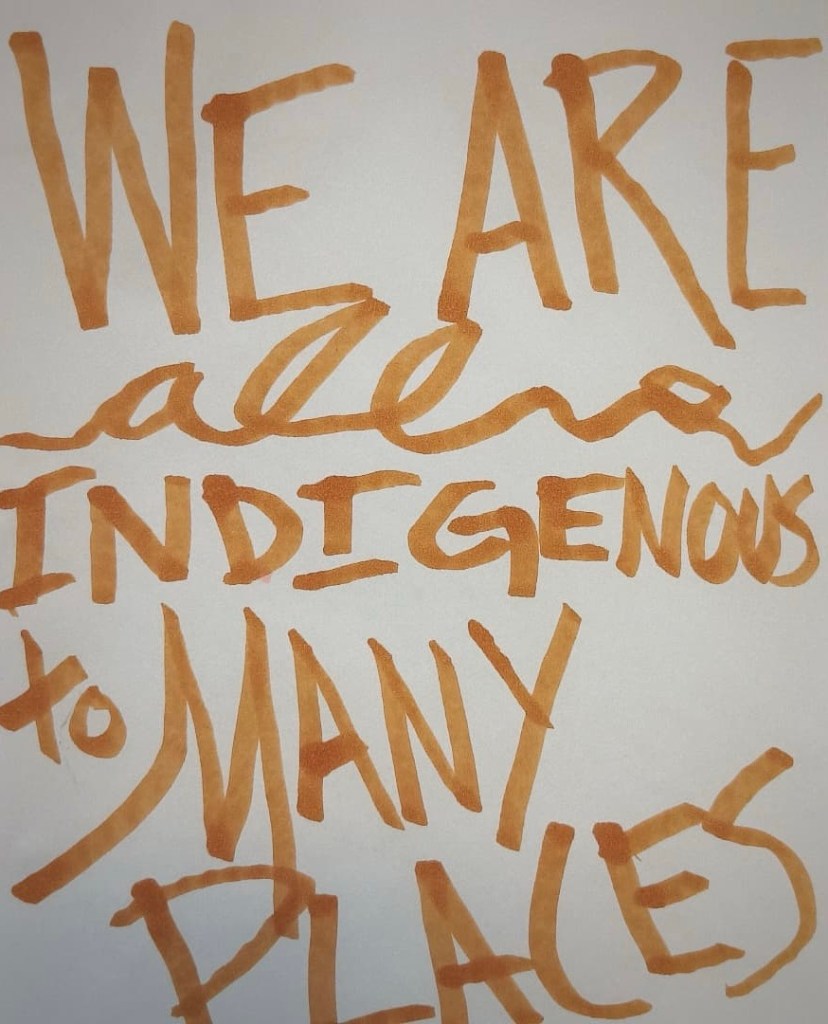 WE ARE
all
INDIGENOUS
to MANY
PLACES